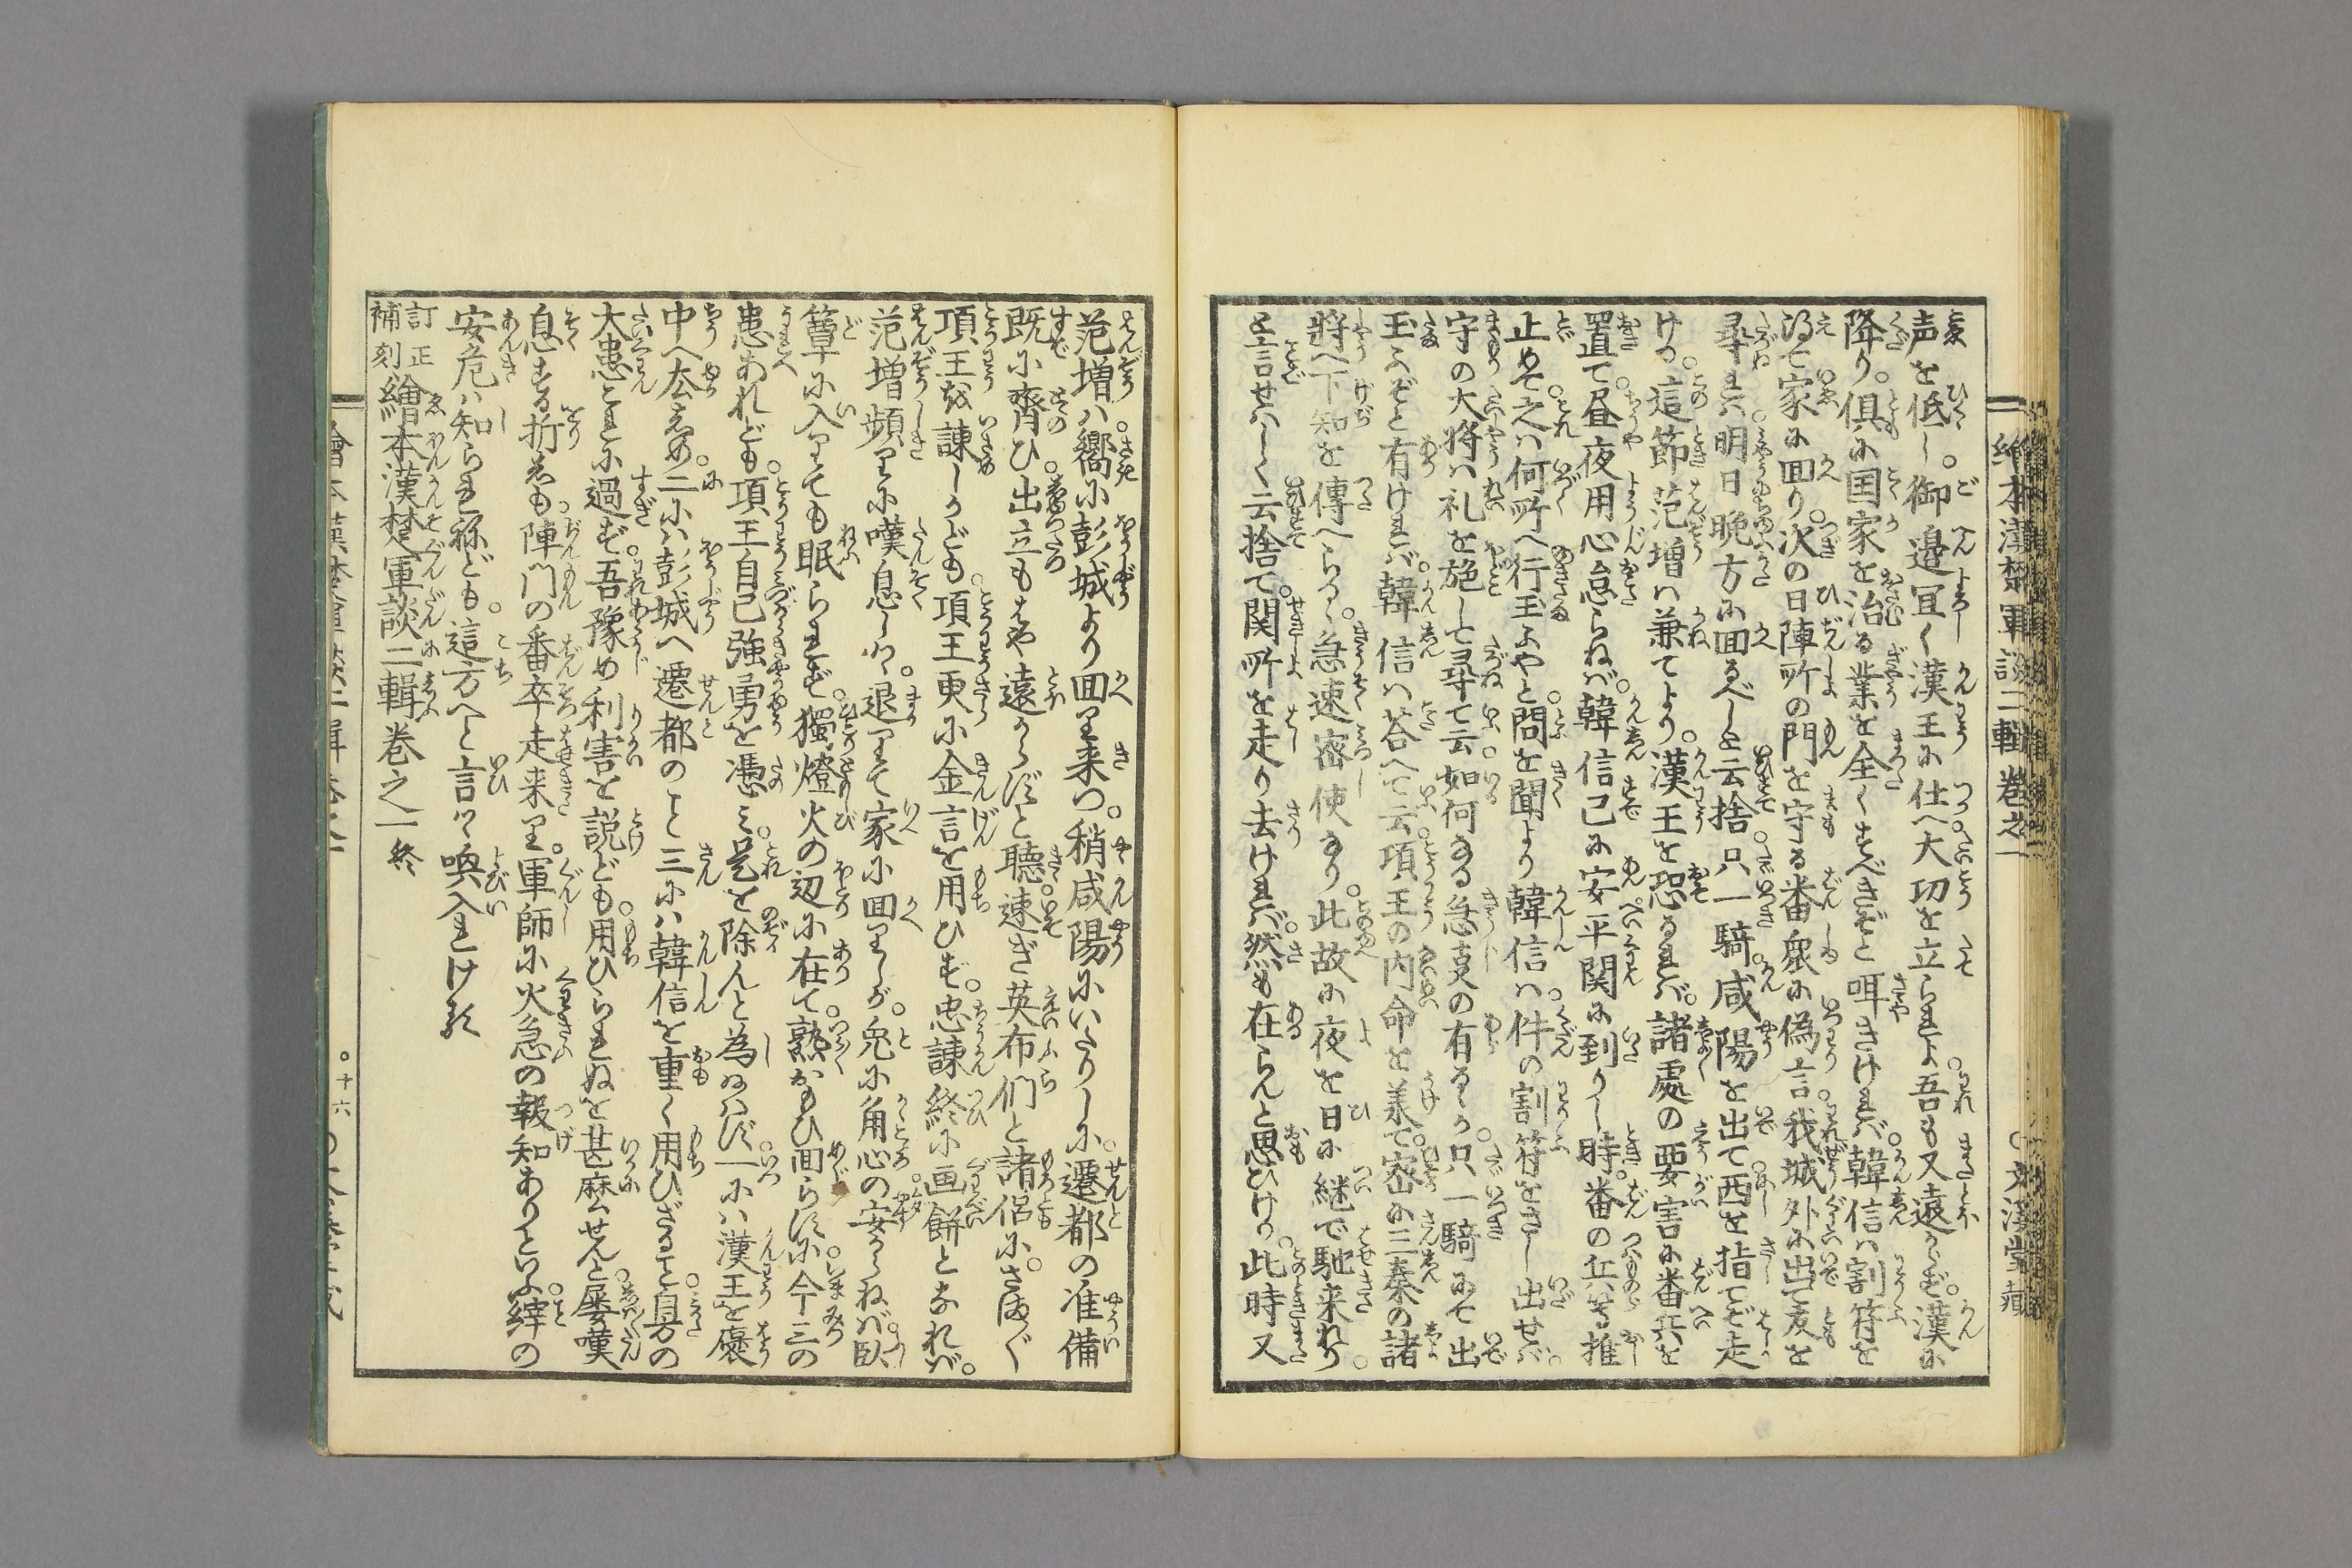 繪本漢楚軍談二輯巻之一
声を低し。御邉冝く漢王に仕へ大功を立られよ。吾も又遠からず。漢に
降り。倶に国家を治る業を全くすべきぞと咡きければ。韓信ハ割符を
得て家に回り。次の日陣所の門を守る番衆に偽言。我城外に出て友を
尋れバ。明日晩方に回るべしと云捨。只一騎。咸陽を出て西を指てぞ走
ける。這節范増ハ兼てより。漢王を恐るれバ。諸處の要害に番兵を
置て。昼夜用心怠らねバ。韓信已に安平関に到りし時。番の兵等推
止めて。之ハ何所へ行玉ふやと。問を聞より韓信ハ。件の割符をさし出せバ。
守の大将ハ礼を施して尋て云。如何なる急支の有るゝ。只一騎にて出
玉ふぞと有けれバ。韓信ハ荅へて云。項王の内命を羕て。密に三秦の諸
将へ下知を傳へらるゝ。急速密使なり。此故に夜を日に継で馳来れり。
と言せはしく云捨て。関所を走り去けれバ。然も在らんと思ひける。此時又
范増ハ。嚮に彭城より回り来つ。稍咸陽にいたりしに。遷都の准備
既に齊ひ。出立もはや遠からずと聴。速ぎ英布们と諸侶に。さまざま
項王を諌しかども。項王更に金言を用ひず。忠諌終に画餅となれバ。
范増頻りに嘆息しつゝ。退りて家に回りしが。兎に角心の安からねバ。臥
簟に入りても眠られず。獨燈火の辺に在て。熟おもひ面らすに。今三の
患あれども。項王自己強勇を憑み。是を除んと為給はず。一にハ漢王を褒
中へ厺しめ。二にハ彭城へ遷都のこと。三にハ韓信を重く用ひざること。身の
大患これに過ず。吾豫め利害を説ども。用ひられぬを甚麽せんと。屡嘆
息する折しも。陣門の番卒走来り。軍師に火急の報知ありといふ。縡の
安危ハ知られねども。這方へと言つゝ喚入れける
訂正補刻繪本漢楚軍談二輯巻之一終
十六